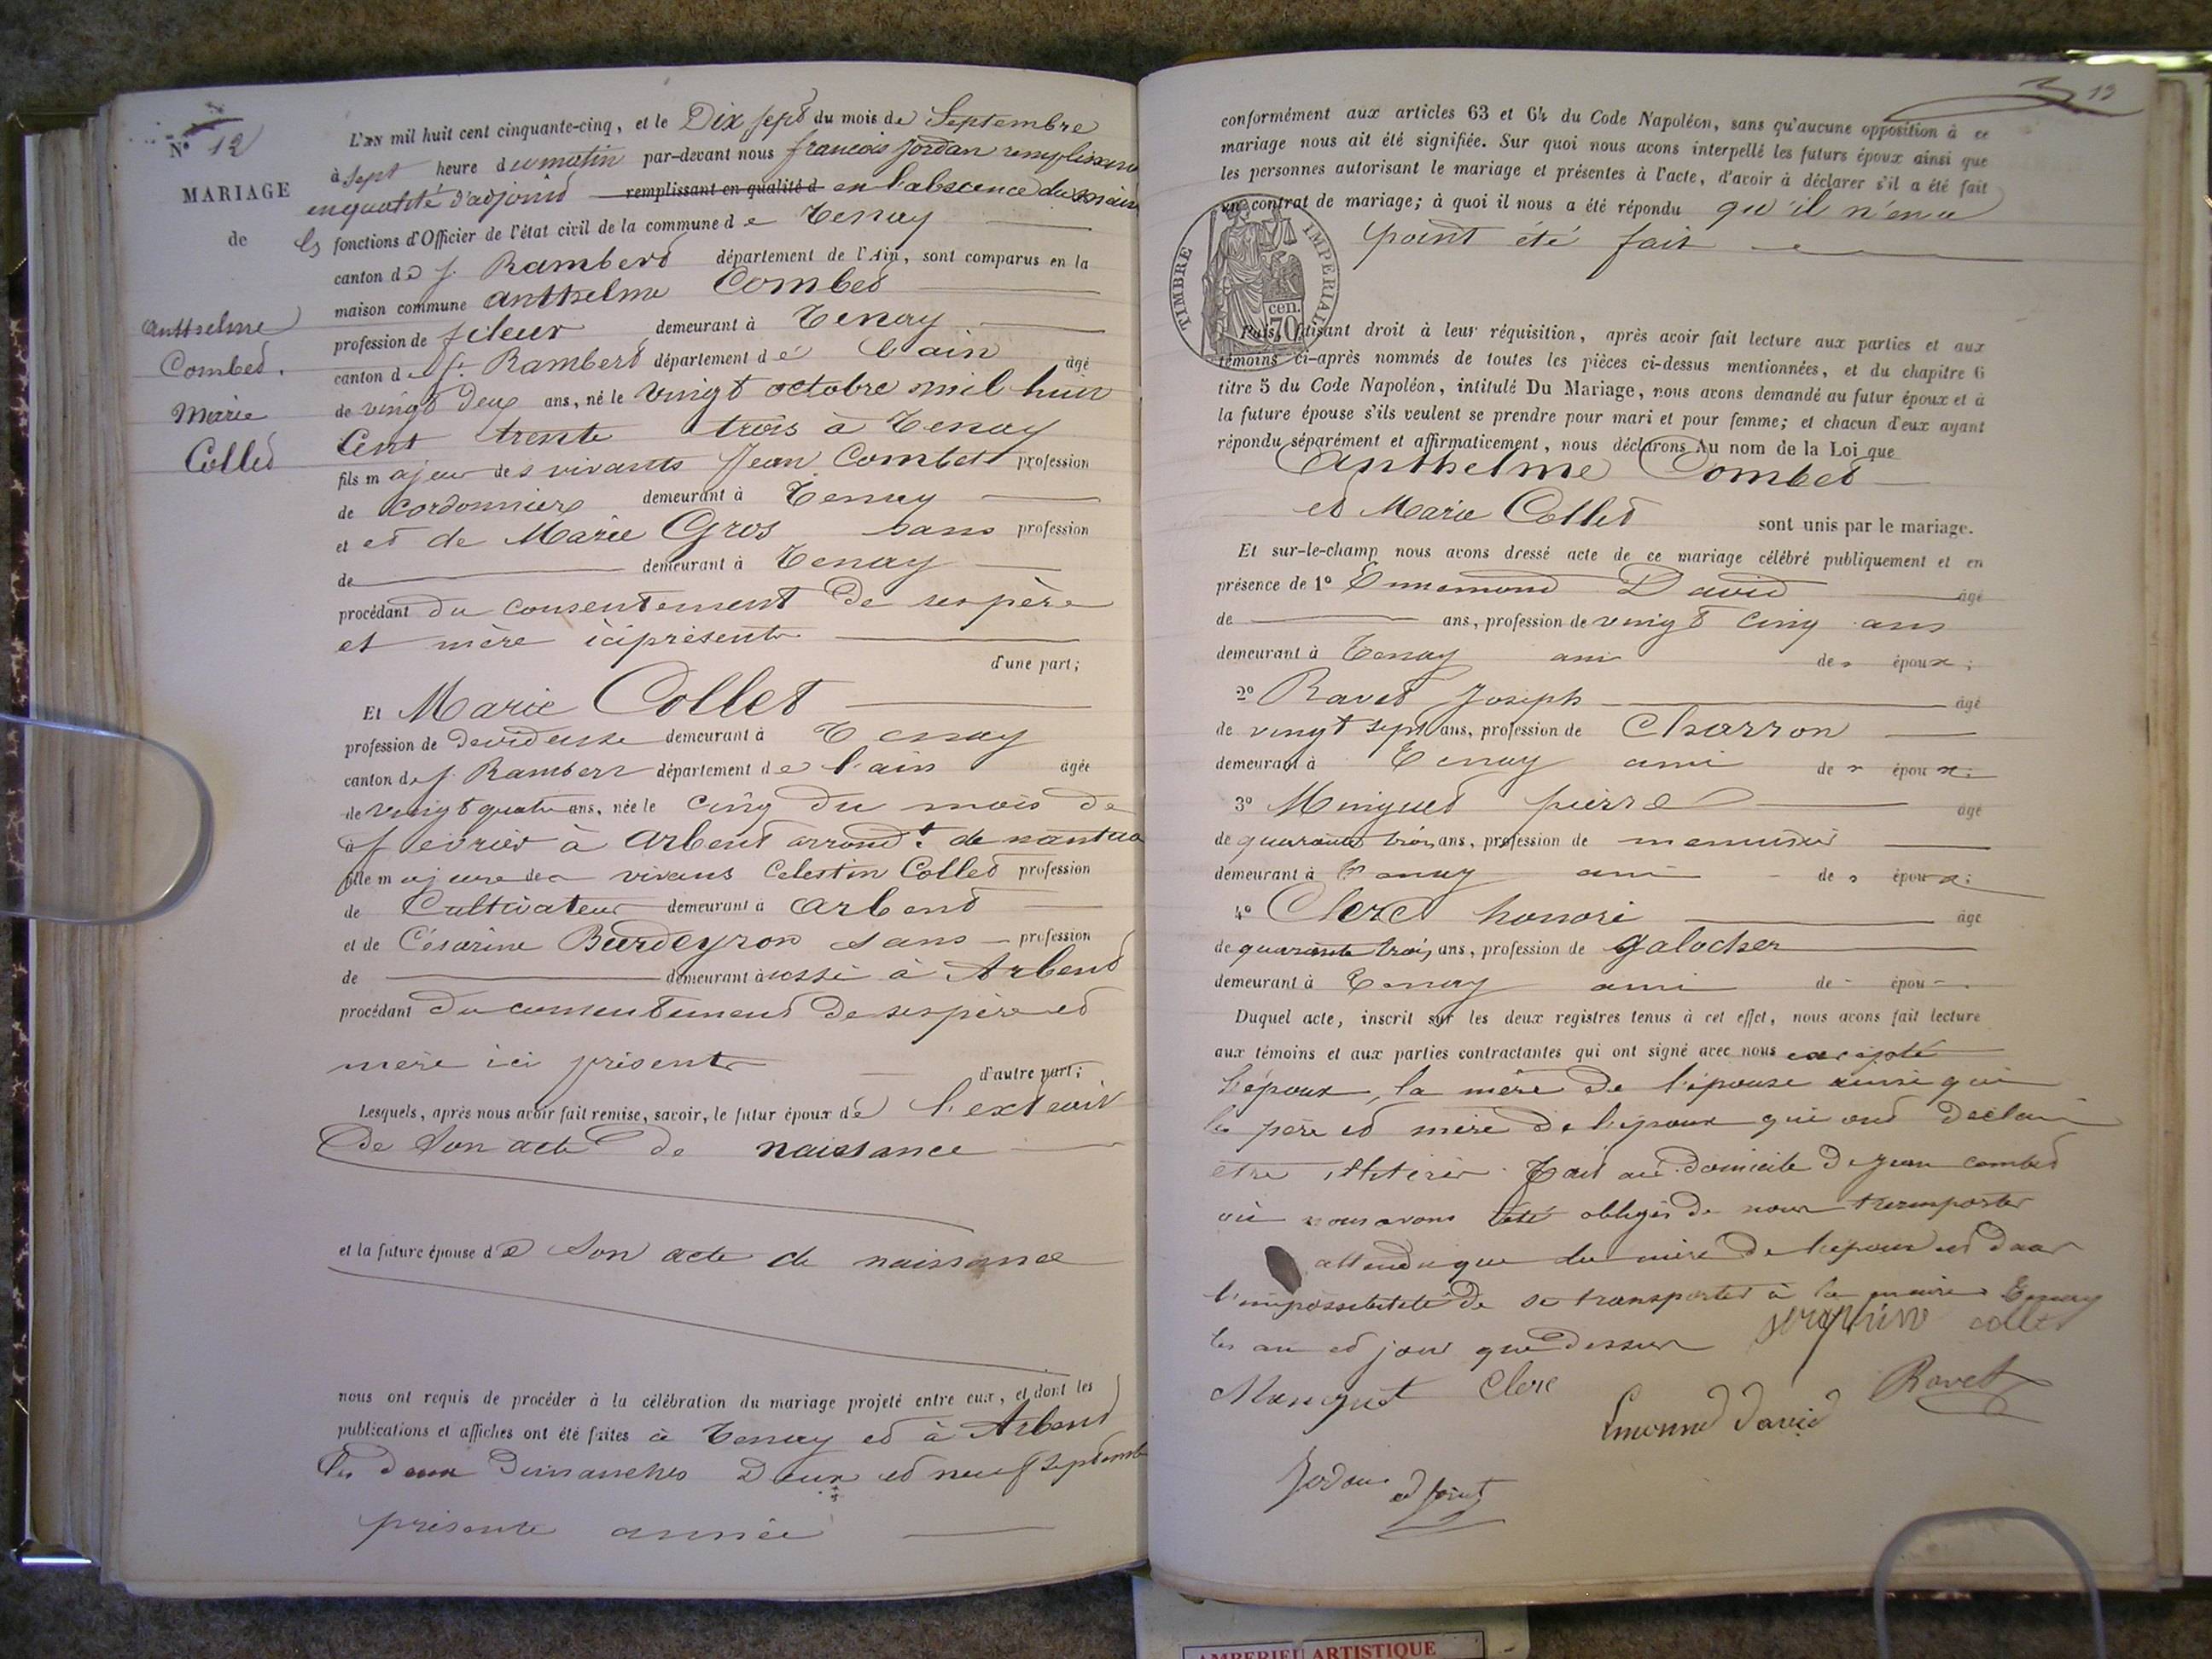 N° 12
MARIAGE
de
Anthelme
Combet.
Marie
Collet
L'an mil huit cent cinquante-cinq, et le Dix sept du mois de Septembre
à sept heure du matin par-devant nous francois Jordan remplissant
en qualité d'adjoint remplissant en qualité d en l'abscence du maire
les fonctions d'Officier de l'état civil de la commune de Tenay
canton de St Rambert département de l'Ain, sont comparus en la
maison commune anthelme Combet
profession de fileur demeurant à Tenay
canton de St Rambert département de l'ain âgé
de vingt deux ans, né le vingt octobre mil huit
Cent trente trois à Tenay
fils majeur des vivants Jean Combet profession
de cordonnier demeurant à Tenay
et et de Marie Gros sans profession
de demeurant à Tenay
procédant du consentement de ses père
et mère ici présents
d'une part;
Et Marie Collet
profession de devideuse demeurant à Tenay
canton de St Rambert département de l'ain âgée
de vingt quatre ans, née le cinq du mois de
fevrier à Arbent arrondt. de nantua
fille majeure des vivans Celestin Collet profession
de Cultivateur demeurant à Arbent
et de Césarine Burdeyron sans profession
de demeurant à aussi à Arbent
procédant du consentement de ses père et
mère ici présents
d'autre part;
Lesquels, après nous avoir fait remise, savoir, le futur époux de l'extrait
de Son acte de naissance
et la future épouse de Son acte de naissance
nous ont requis de procéder à la célébration du mariage projeté entre eux, et dont les
publications et affiches ont été faites à Tenay et à Arbent
les deux Dimanches Deux et neuf septembre
présente année
13
conformément aux articles 63 et 64 du Code Napoléon, sans qu'aucune opposition à ce
mariage nous ait été signifiée. Sur quoi nous avons interpellé les futurs époux ainsi que
les personnes autorisant le mariage et présentes à l'acte, d'avoir à déclarer s'il a été fait
un contrat de mariage; à quoi il nous a été répondu qu'il n'en a
point été fait
TIMBRE IMPERIAL
70 cen.
Puis, faisant droit à leur réquisition, après avoir fait lecture aux parties et aux
témoins ci-après nommés de toutes les pièces ci-dessus mentionnées, et du chapitre 6
titre 5 du Code Napoléon, intitulé Du Mariage, nous avons demandé au futur époux et à
la future épouse s'ils veulent se prendre pour mari et pour femme; et chacun d'eux ayant
répondu séparément et affirmativement, nous déclarons Au nom de la Loi que
Anthelme Combet
et Marie Collet sont unis par le mariage.
Et sur-le-champ nous avons dressé acte de ce mariage célébré publiquement et en
présence de 1° Ennemond David âgé
de ans, profession de vingt cinq ans
demeurant à Tenay ami des époux;
2° Ravet Joseph âgé
de vingt sept ans, profession de Charron
demeurant à Tenay ami des époux;
3° Minguet pierre âgé
de quarante trois ans, profession de menuisier
demeurant à Tenay ami des époux;
4° Clerc honoré âgé
de quarante trois ans, profession de galocher
demeurant à Tenay ami de épou
Duquel acte, inscrit sur les deux registres tenus à cet effet, nous avons fait lecture
aux témoins et aux parties contractantes qui ont signé avec nous excepté
l'époux, la mère de l'épouse ainsi que
les père et mère de l'époux qui ont déclaré
être illitérés. Fait au domicile de Jean Combet
où nous avons été obligés de nous transporter
attendu que la mère de l'époux est dans
l'impossibilité de se transporter à la mairie Tenay
les an et jour que dessus
collet
Manguet Clerc
Emonnd david
Ravet
Jordan adjoint
AMBERIEU ARTISTIQUE